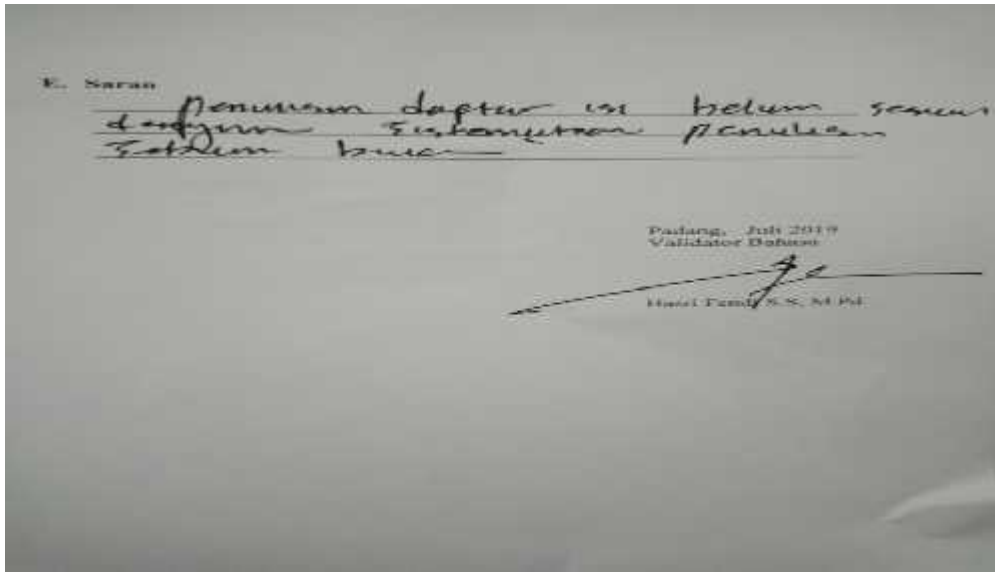 E. Saran
Penulisan daftar isi belum sesuai
dengan sistematika penulisan
sebuah buku
Padang, Juli 2019
Validator Bahasa
Hasri Fendi, S.S, M.Pd